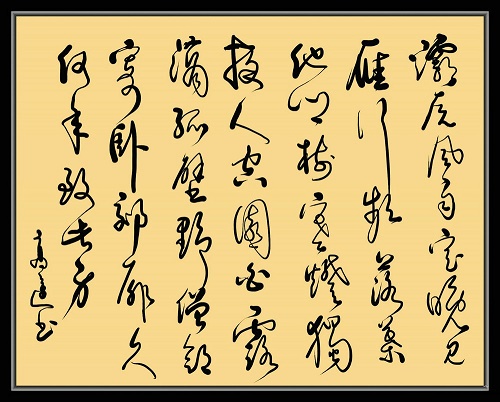 灞原風雨定晚見
雁行頻落葉
他鄉樹寒燈獨
夜人空園白露
滴孤壁野僧鄰
寄卧郊扉久
何年致此身
高书